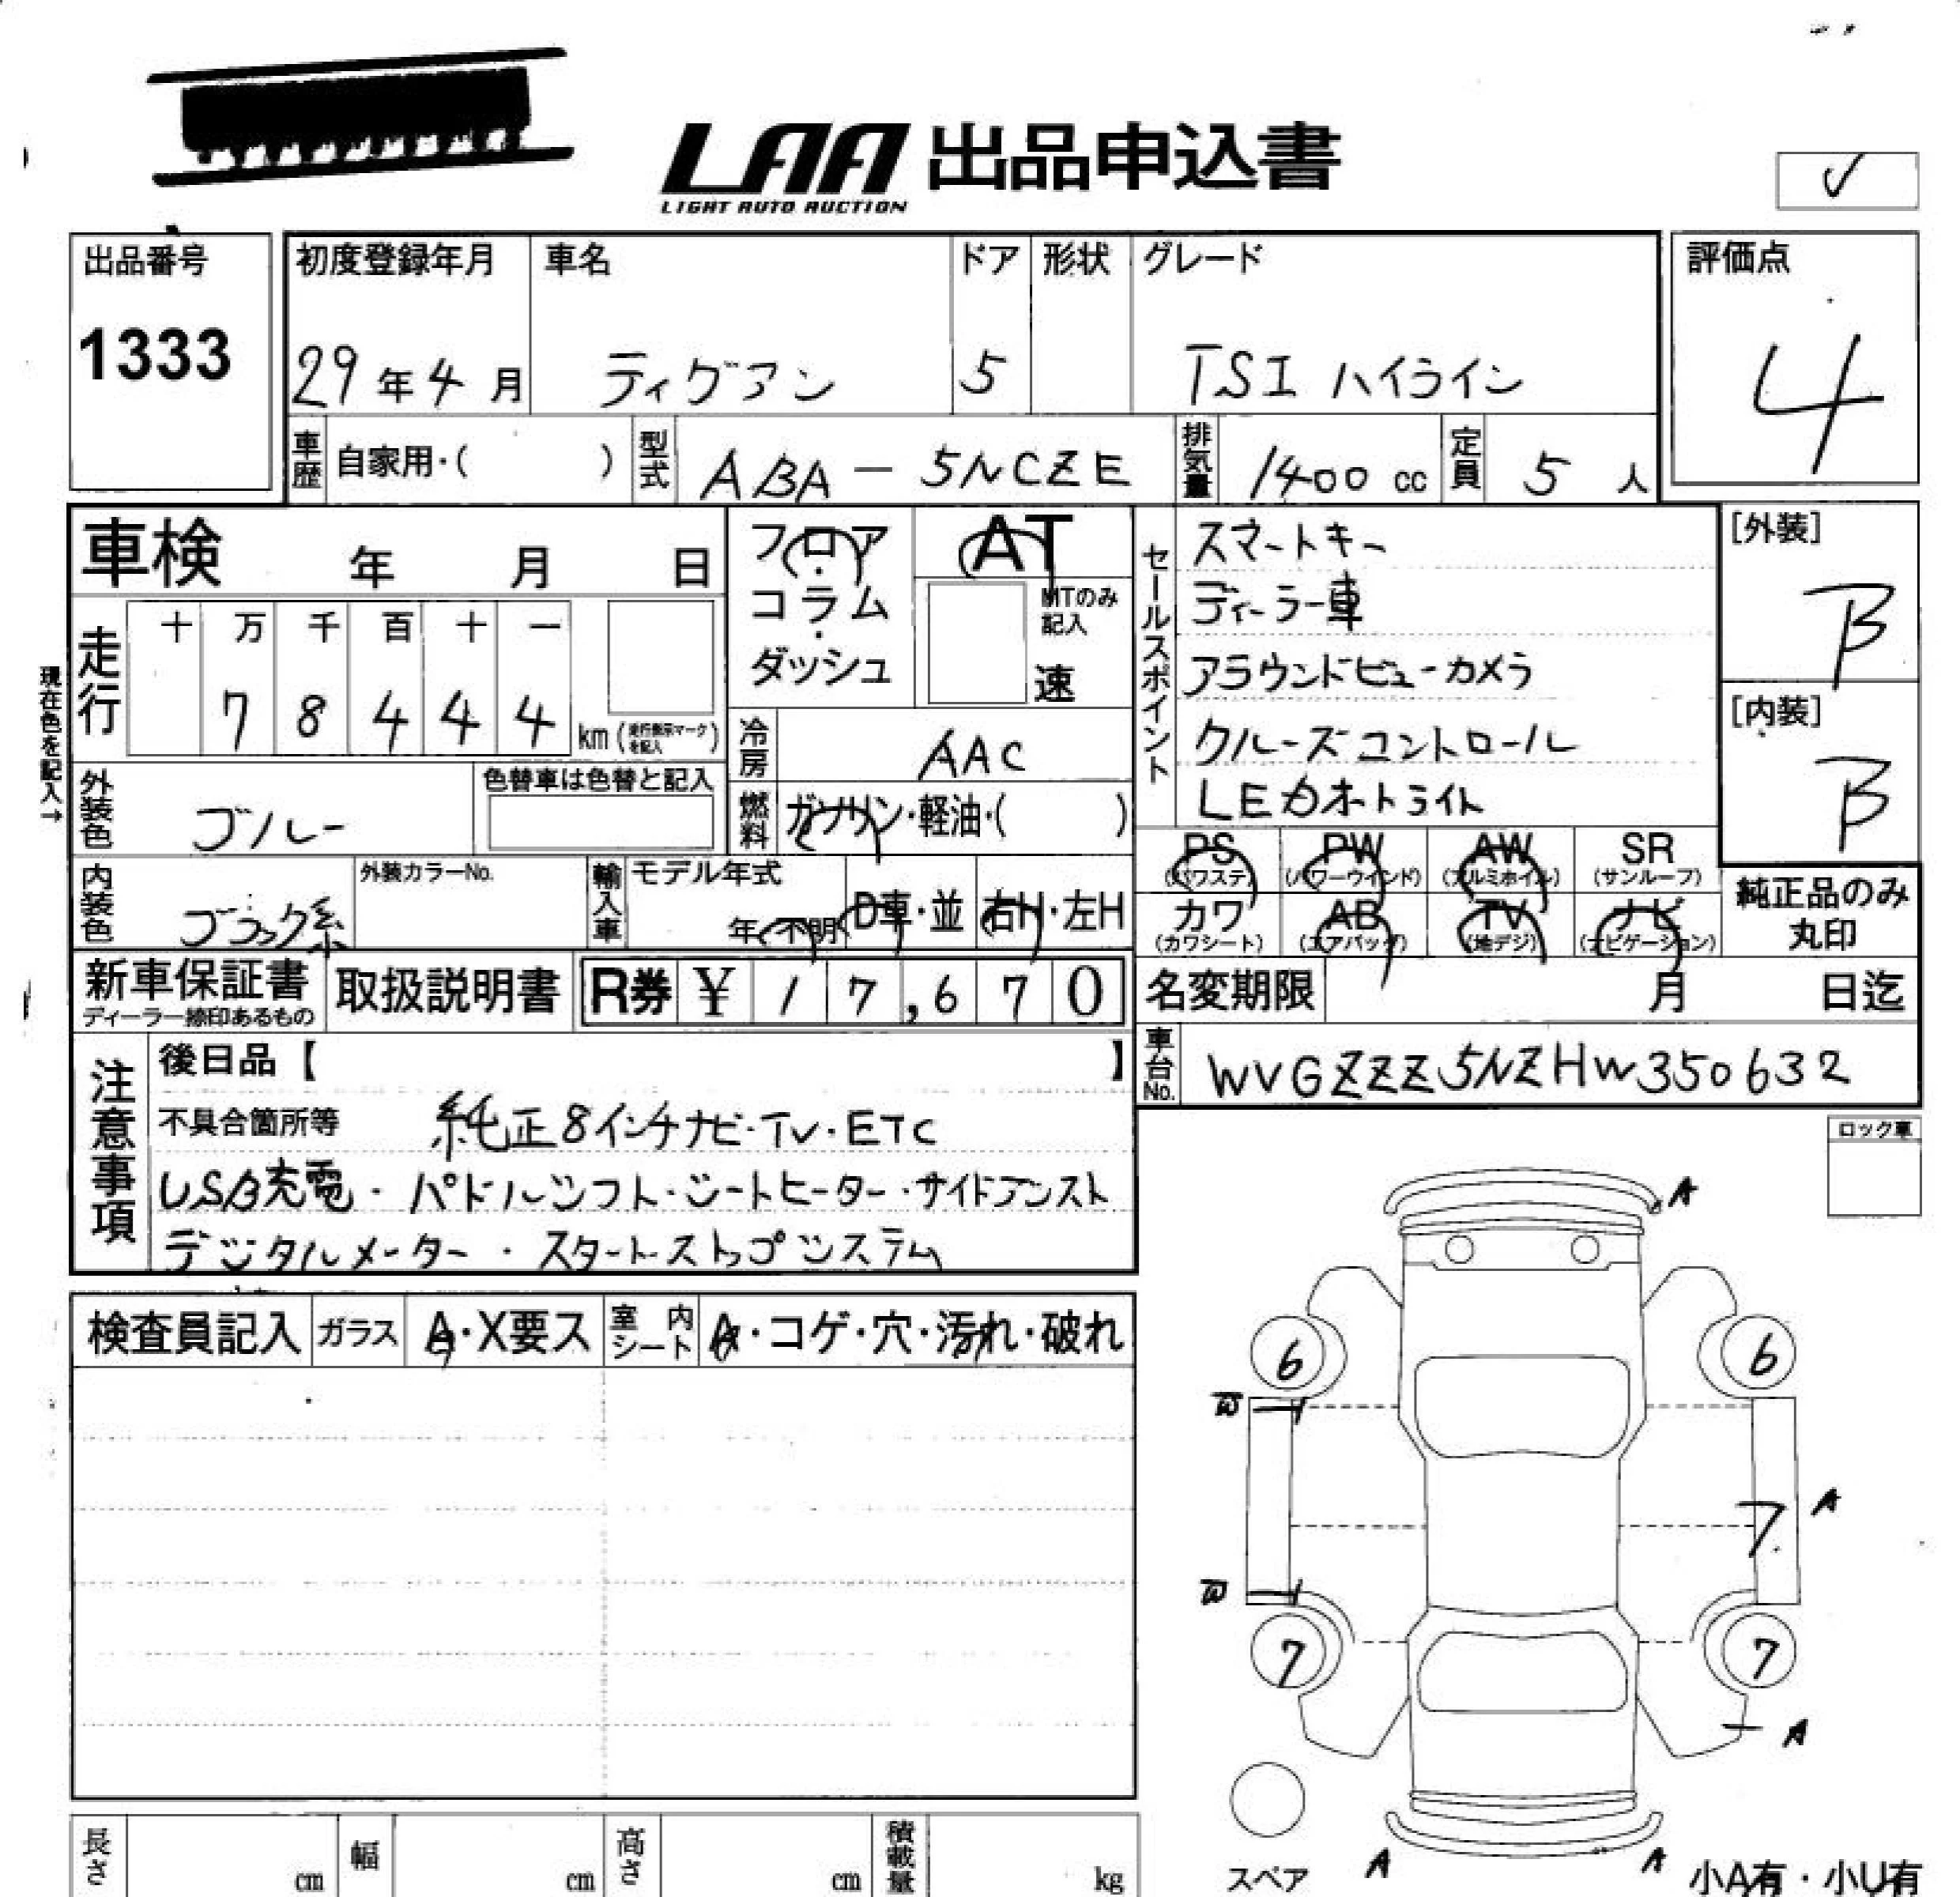 LAA 出品申込書
LIGHT AUTO AUCTION
✓
出品番号
1333
初度登録年月 車名 ドア 形状 グレード
29年4月 ティグアン 5 TSI ハイライン
評価点
4
車歴 自家用・( ) 型式 ABA-5NCZE 排気量 1400cc 定員 5人
車検 年 月 日
フロア・コラム・ダッシュ
AT
MTのみ記入
速
セールスポイント
スマートキー
ディーラー車
アラウンドビューカメラ
クルーズコントロール
LEDオートライト
[外装]
B
[内装]
B
現在色を記入→
走行 十 万 千 百 十 一
7 8 4 4 4 km(走行指示マークを記入)
冷房 AAC
外装色 ブルー 色替車は色替と記入
燃料 ガソリン・軽油・( )
PS PW AW SR
(パワステ) (パワーウインド) (アルミホイル) (サンルーフ)
カワ AB TV ナビ
(カワシート) (エアバッグ) (地デジ) (ナビゲーション)
純正品のみ丸印
内装色 ブラック系 外装カラーNo. 輸入車 モデル年式 年・不明 D車・並 右H・左H
新車保証書
ディーラー捺印あるもの
取扱説明書 R券 ¥ 17,670
名変期限 月 日迄
車台No. WVGZZZ5NZHW350632
注意事項
後日品【 】
不具合箇所等 純正8インチナビ・TV・ETC
USB充電・パドルシフト・シートヒーター・サイドアシスト
デジタルメーター・スタートストップシステム
ロック車
検査員記入 ガラス A・X要ス 室内シート A・コゲ・穴・汚れ・破れ
A
6 6
W
A
W
7 7
A
A A
スペア
小A有・小U有
長さ cm 幅 cm 高さ cm 積載量 kg